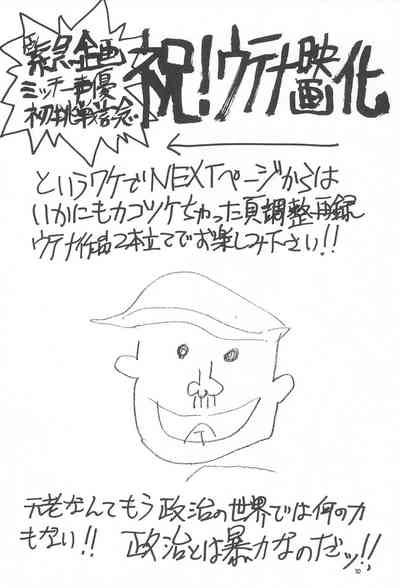 緊急企画
ミッチー声優
初挑戦記念
祝!ウテナ映画化
というワケでNEXTページからは
いかにもカコツケちゃった頁調整再録
ウテナ作品2本立てでお楽しみ下さい!!
元老なんてもう政治の世界では何の力
もない!! 政治とは暴力なのだッ!!